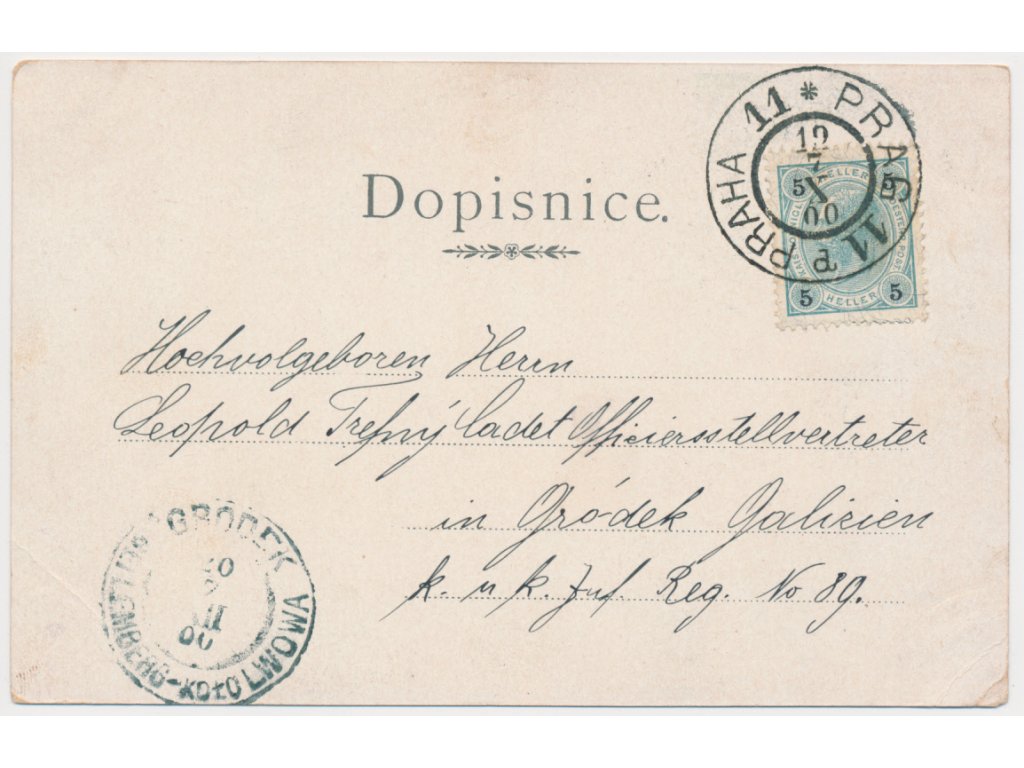 PRAHA 11 * PRAG 11
12
7
X
00
d
5 HELLER 5
5 HELLER 5
Dopisnice.
Hochvolgeboren Herrn
Leopold Trefný Cadet Officiersstellvertreter
in Gródek Galizien
k. u k. Inf. Reg. No 89.
GRÓDEK
00
LEMBERG - KOŁO LWOWA